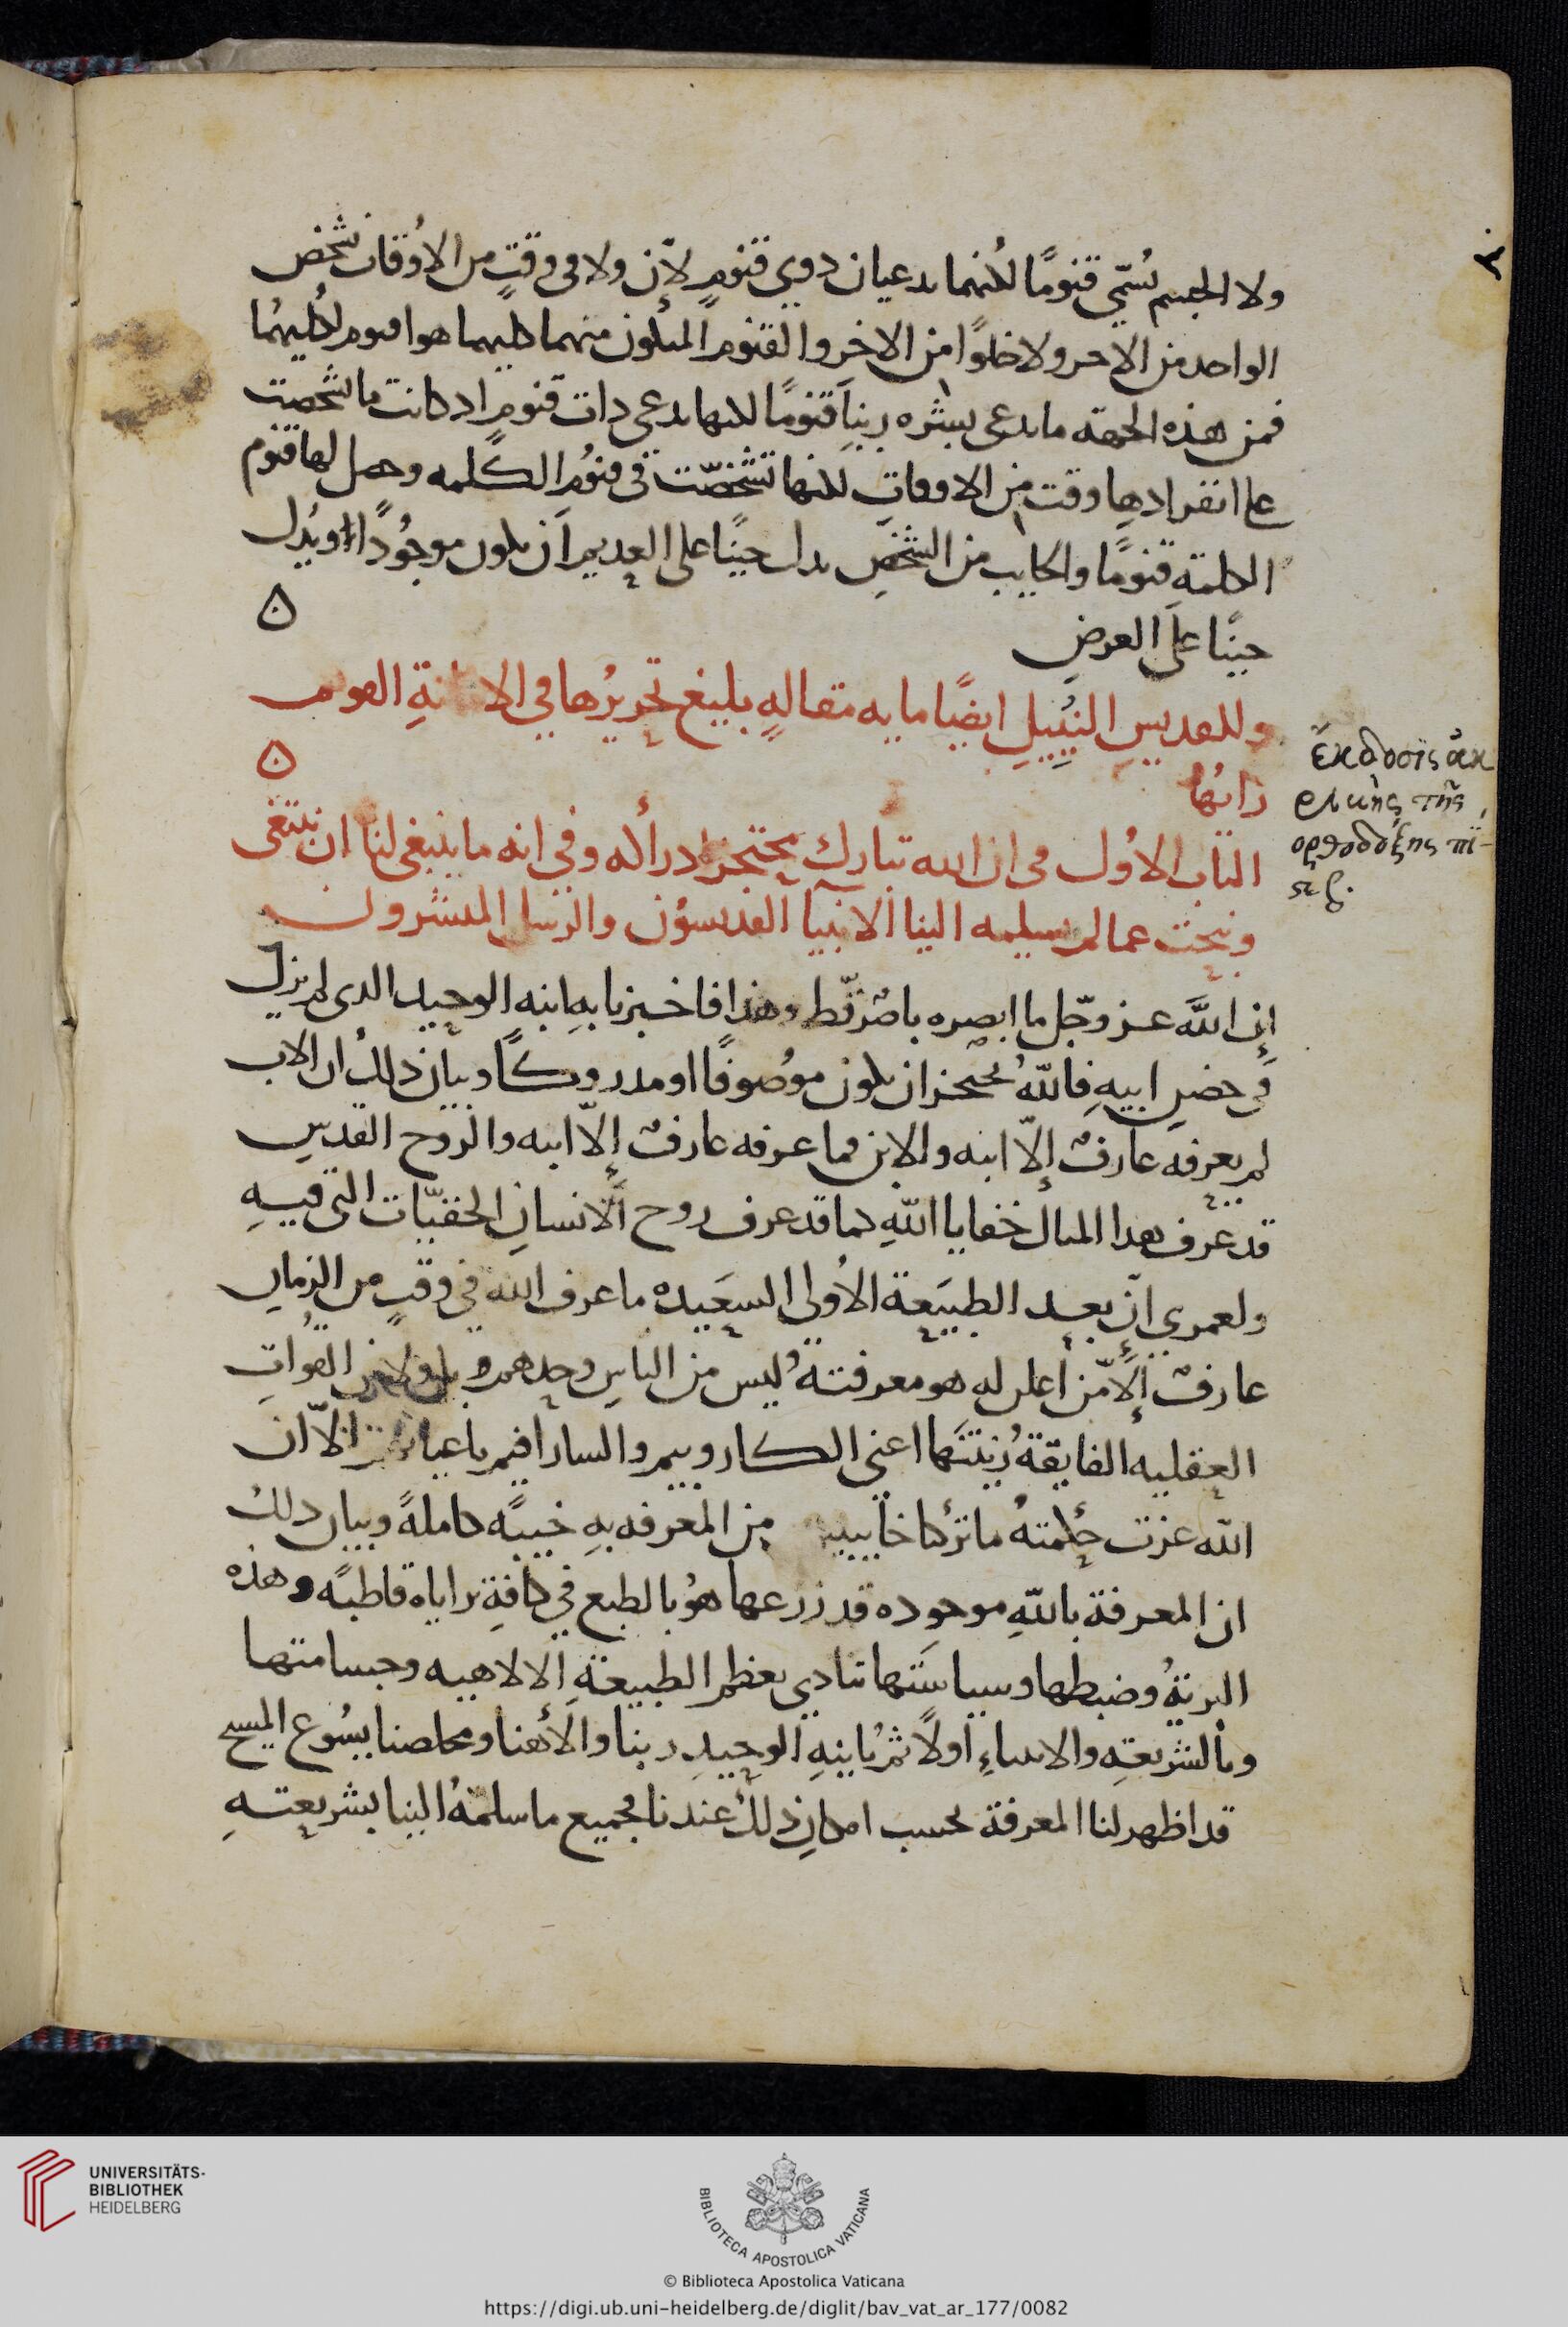 ولا الجسم يُسمّي قنومًا لكنهما يدعيان دوي قنومٍ لأن ولا في وقتٍ من الاوقات شخص
الواحد من الاخر ولا خلوًا من الاخر والقنوم المكون منهما كليهما هو اقنوم لكليهما
فمن هذه الجهة ما يدعى بشره ربنا قنومًا لكنها يدعى دات قنومٍ اد كانت ما شخصت
على انفرادها وقت من الاوقات لكنها تشخصّت في قنوم الكلمه وحصل لها قنوم
الكلمةِ قنومًا والخايب من الشخصِ يدل حينًا على العديم ان يكون موجُودًا ويُدل
حينًا على العرضِ
وللقديسِ النبيلِ ايضًا مايه مقالهٍ بليغ تحريرُها في الامانةِ القويم
رايُها
الباب الاول في ان الله تبارك محتجز ادراكه وفي انه ما ينبغي لنا ان نبتغي
ونبحث عما لم يسلمه الينا الانبيا القديسون والرسل المبشرون
إن اللَّه عز وجّل ما ابصره باصرٌ قط وهذا فاخبرنا بهِ ابنه الوحيد الدى لم يزل
في حضنِ ابيهِ فاللَّهُ محتجز ان يكون موصُوفًا او مدروكًا وبيان ذلك ان الاب
لم يعرفه عارفٌ إلاّ ابنه والابن فما عرفه عارفٌ إلاّ ابيه والروح القدسِ
قد عرف بهدا المثال خفايا اللَّهِ كما قد عرف روح الانسانِ الخفيّات التي فيهِ
ولعمري إنّ بعد الطبيعة الأولى السعيده ما عرف الله في وقتٍ من الزمانِ
عارفٌ إلاّ من أعلن له هو معرفتهُ وليس من الناسِ وحدهم بل ولا من القواتِ
العقليه الفايقةُ زينتَها اعني الكاروبيم والسارافيم باعيانهم الاّ ان
الله عزت حكمتهُ ما تركنا خايبين من المعرفه بهِ خيبًه كاملةً وبيان دلك
ان المعرفة باللهِ موجوده قد زرعها هوُ بالطبع في كافةِ براياه قاطبًه وهذه
البريةُ وضبطها وسياسَتها تنادي بعظم الطبيعةِ الالاهيه وجسامتها
وبالشريعتِه والانبياءِ اولاً ثم بابنهِ الوحيدِ ربنا والاهنا ومخلصنا يسُوع المسيح
قد اظهر لنا المعرفة بحسب امكانِ ذلك عندنا فجميع ما سلمهُ الينا بشريعتهِ
ἔκδοσις ἀκ
ριβὴς τῆς
ὀρθοδόξης πί-
στ
UNIVERSITÄTS-
BIBLIOTHEK
HEIDELBERG
BIBLIOTECA APOSTOLICA VATICANA
© Biblioteca Apostolica Vaticana
https://digi.ub.uni-heidelberg.de/diglit/bav_vat_ar_177/0082